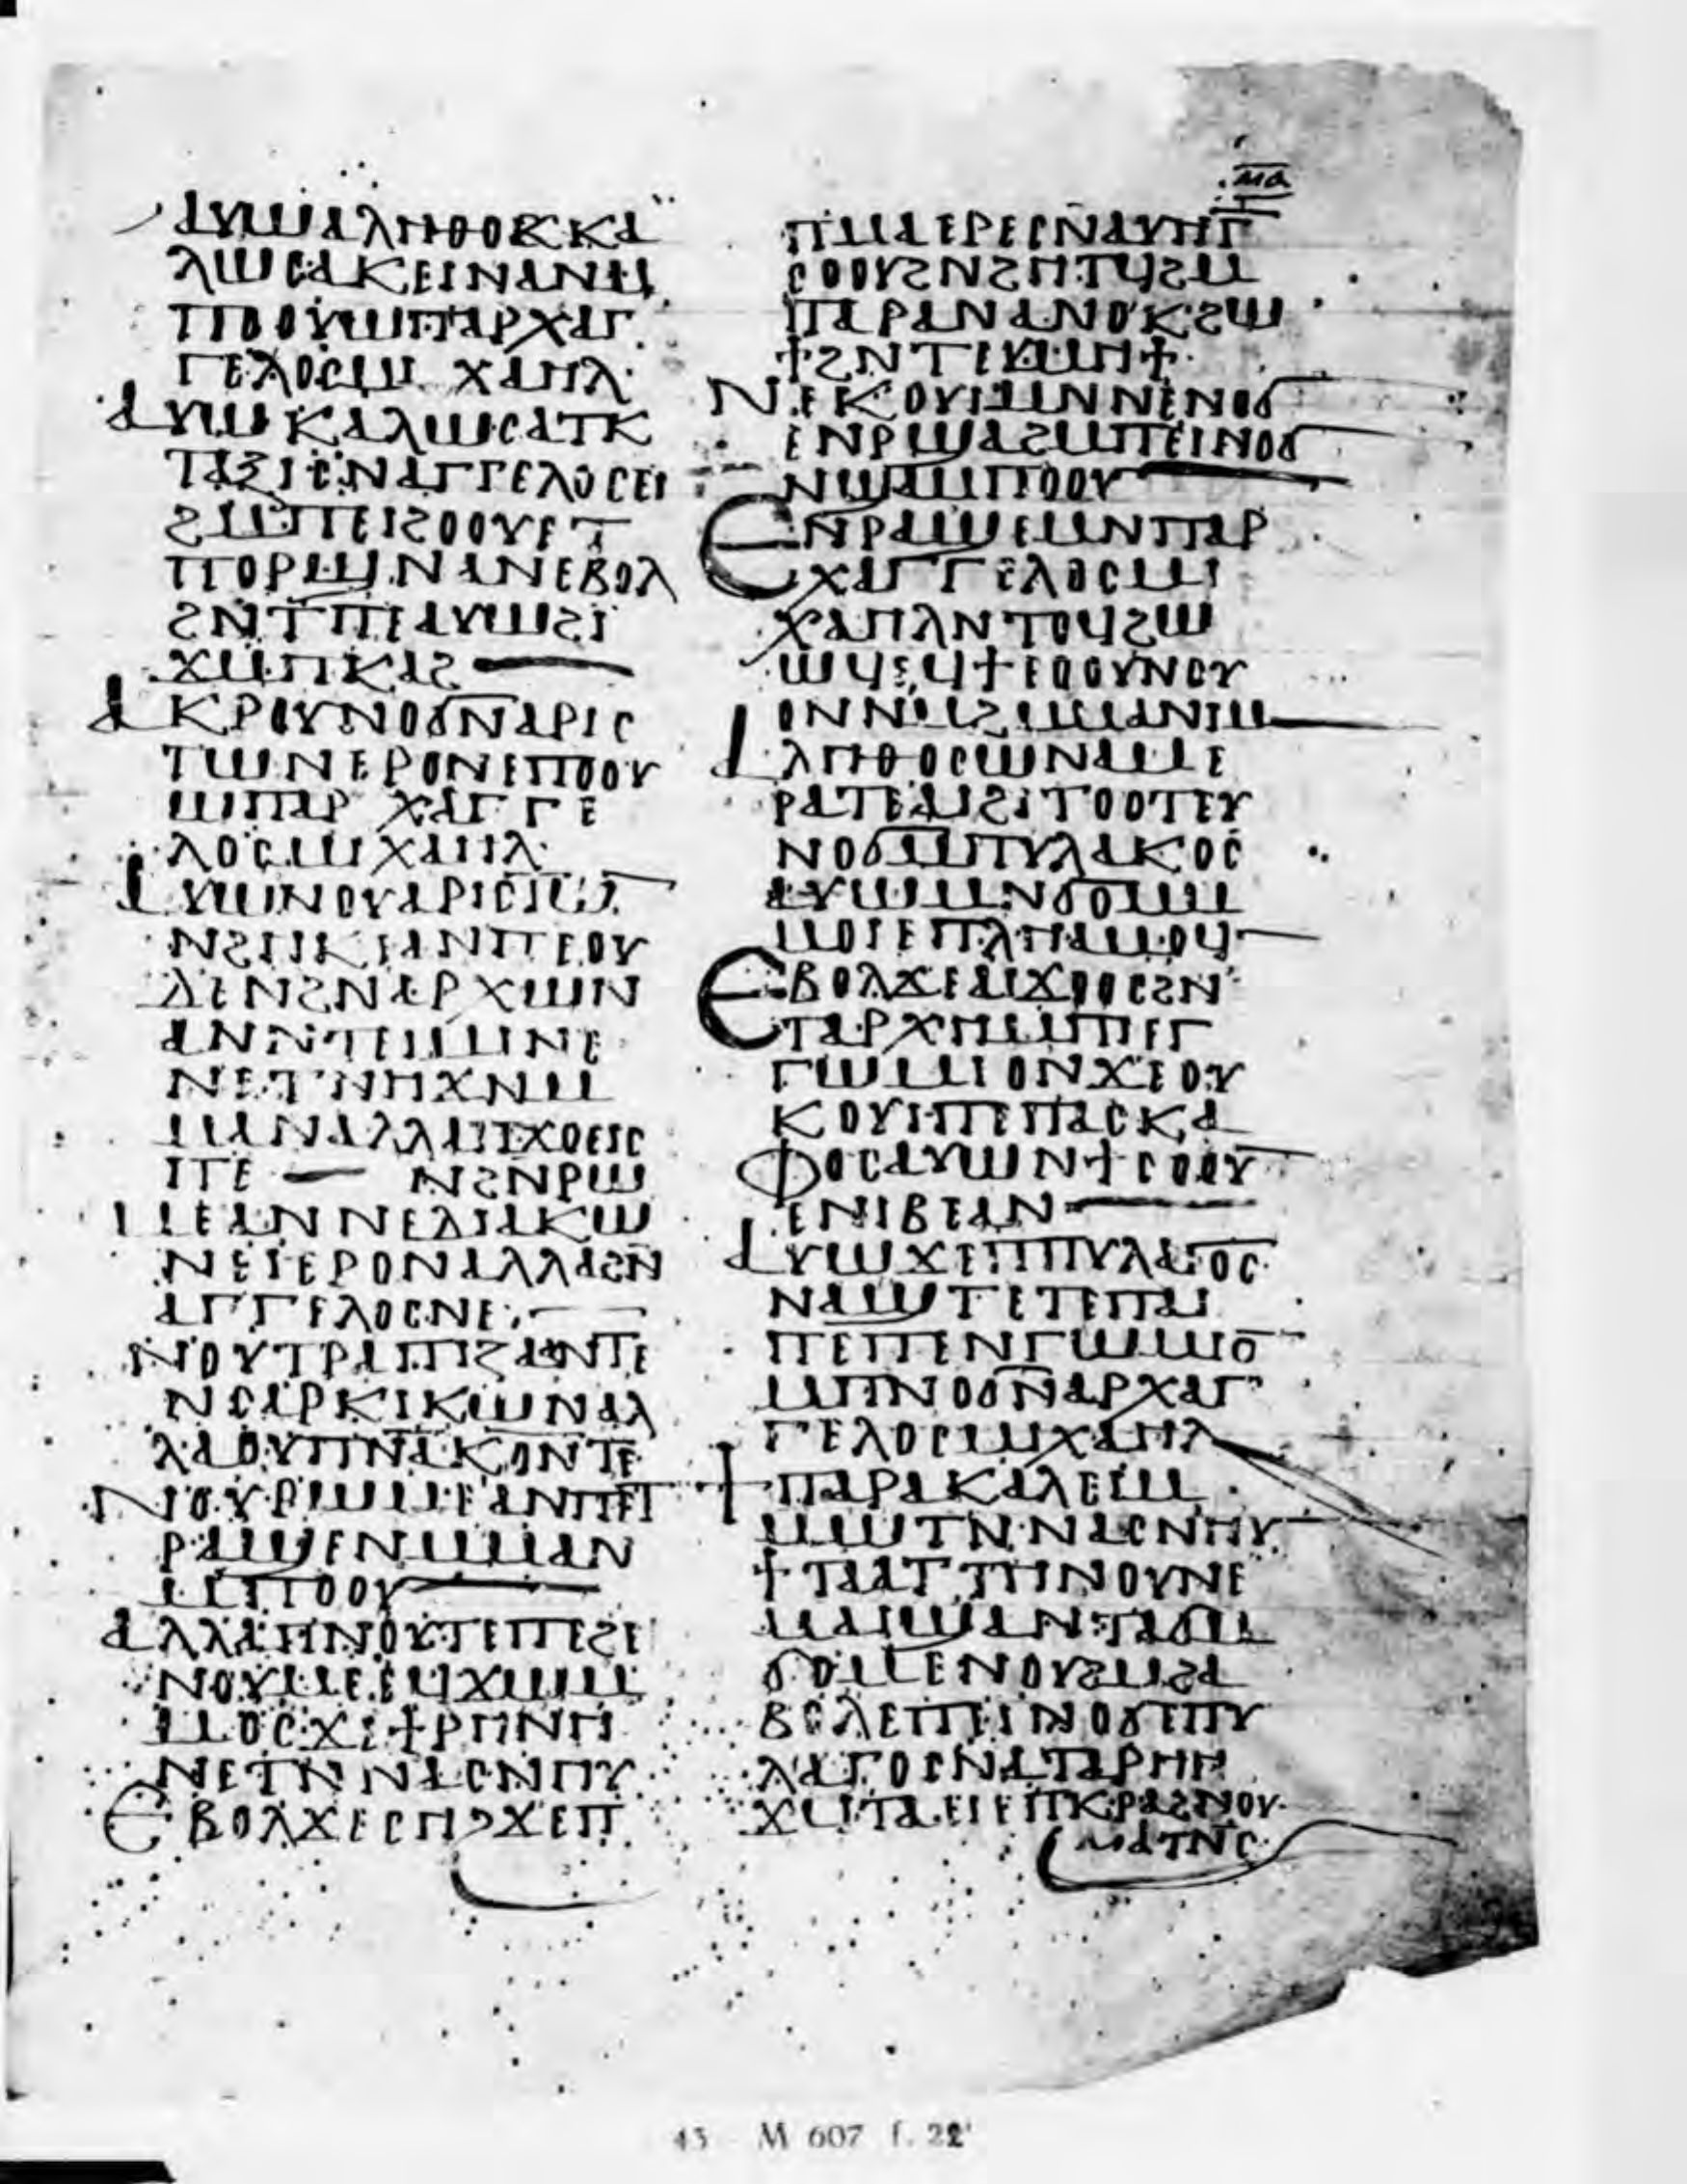 ⲙⲁ
ⲁⲩⲱⲁⲗⲏⲑⲟⲥⲕⲁ
ⲗⲱⲥⲁⲕⲉⲓⲛⲁⲛⲙ
ⲡⲟⲟⲩⲱⲡⲁⲣⲭⲁⲅ
ⲅⲉⲗⲟⲥⲙⲓⲭⲁⲏⲗ·
ⲁⲩⲱⲕⲁⲗⲱⲥⲁⲧⲕ
ⲧⲁⲝⲓⲉⲛⲁⲅⲅⲉⲗⲟⲥⲉⲓ
ϩⲙⲡⲉⲓϩⲟⲟⲩⲉⲧ
ⲡⲟⲣϣⲛⲁⲛⲉⲃⲟⲗ
ϩⲛⲧⲡⲉⲁⲩⲱϩⲓ
ϫⲙⲡⲕⲁϩ
ⲁⲕⲣⲟⲩⲛⲟϭⲛⲁⲣⲓⲥ
ⲧⲱⲛⲉⲣⲟⲛⲉⲡⲟⲟⲩ
ⲱⲡⲁⲣⲭⲁⲅⲅⲉ
ⲗⲟⲥⲙⲓⲭⲁⲏⲗ·
ⲁⲩⲱⲛⲟⲩⲁⲣⲓⲥⲧⲟⲛ
ⲛϩⲏⲕⲓⲁⲛⲡⲉⲟⲩ
ⲇⲉⲛϩⲛⲁⲣⲭⲱⲛ
ⲁⲛⲛⲧⲉⲓⲙⲓⲛⲉ
ⲛⲉⲧⲛⲏϫⲛⲙ
ⲙⲁⲛⲁⲗⲗⲁⲡϫⲟⲉⲓⲥ
ⲡⲉ — ⲛϩⲛⲣⲱ
ⲙⲉⲁⲛⲛⲉⲇⲓⲁⲕⲱ
ⲛⲉⲓⲉⲣⲟⲛⲁⲗⲗⲁϩⲛ
ⲁⲅⲅⲉⲗⲟⲥⲛⲉ:
ⲛⲟⲩⲧⲣⲁⲡⲓⲍⲁⲁⲛⲧⲉ
ⲛⲥⲁⲣⲕⲓⲕⲱⲛⲁⲗ
ⲗⲁⲟⲩⲡⲛⲁⲕⲟⲛⲧⲉ
ⲛⲟⲩⲣⲱⲙⲉⲁⲛⲡⲉⲧ
ⲣⲁϣⲉⲛⲙⲙⲁⲛ
ⲙⲡⲟⲟⲩ
ⲁⲗⲗⲁⲡⲛⲟⲩⲧⲉⲡⲉϩⲓ
ⲛⲟⲩⲙⲉⲉϥϫⲱⲙ
ⲙⲟⲥϫⲉϯⲣⲏⲛⲏ
ⲛⲉⲧⲛⲛⲁⲥⲛⲏⲩ
ⲉⲃⲟⲗϫⲉⲥⲏϩϫⲉⲡ
ⲡⲙⲁⲉⲣⲉⲥⲛⲁⲩⲏⲅ
ⲥⲟⲟⲩϩⲛϩⲏⲧϥϩⲙ
ⲡⲁⲣⲁⲛⲁⲛⲟⲕϩⲱ
ϯϩⲛⲧⲉⲩⲙⲏϯ
ⲛⲉⲕⲟⲩⲓⲙⲛⲛⲉⲛⲟϭ
ⲉⲛⲣϣⲁϩⲙⲡⲉⲓⲛⲟϭ
ⲛϣⲁⲙⲡⲟⲟⲩ
ⲉⲛⲣⲁϣⲉⲙⲛⲡⲁⲣ
ⲭⲁⲅⲅⲉⲗⲟⲥⲙⲓ
ⲭⲁⲏⲗⲛⲧⲟϥϩⲱ
ⲱϥⲉϥϯⲉⲟⲟⲩⲛⲟⲩ
ⲟⲛⲛⲓⲙϩⲙⲙⲁⲛⲓⲙ
ⲁⲗⲏⲑⲟⲥⲱⲛⲁⲙⲉ
ⲣⲁⲧⲉⲁⲓϩⲓⲧⲟⲟⲧⲉⲩ
ⲛⲟϭⲙⲡⲩⲗⲁⲕⲟⲥ
ⲁⲩⲱⲙⲛϭⲟⲙⲙ
ⲙⲟⲓⲉⲡⲗⲏⲁⲙⲟϥ
ⲉⲃⲟⲗϫⲉⲁⲓϫⲟⲟⲥϩⲛ
ⲧⲁⲣⲭⲏⲙⲡⲉⲅ
ⲅⲱⲙⲓⲟⲛϫⲉⲟⲩ
ⲕⲟⲩⲓⲡⲉⲡⲁⲥⲕⲁ
ⲫⲟⲥⲁⲩⲱⲛϯⲥⲟⲟⲩ
ⲉⲛⲓⲃⲉⲁⲛ
ⲁⲩⲱϫⲉⲡⲡⲩⲗⲁⲅⲟⲥ
ⲛⲁϣⲧⲉⲧⲉⲡⲁⲓ
ⲡⲉⲡⲉⲛⲅⲱⲙⲓⲟ
ⲙⲡⲛⲟϭⲛⲁⲣⲭⲁⲅ
ⲅⲉⲗⲟⲥⲙⲓⲭⲁⲏⲗ
ϯⲡⲁⲣⲁⲕⲁⲗⲉⲓⲙ
ⲙⲱⲧⲛⲛⲁⲥⲛⲏⲩ
ϯⲧⲁⲁⲧⲧⲏⲛⲟⲩⲛⲉ
ⲙⲁⲓϣⲁⲛⲧⲁϭⲙ
ϭⲟⲙⲉⲛⲟⲩϩⲙϩⲁ
ⲃⲟⲗⲉⲡⲉⲓⲛⲟϭⲙⲡⲩ
ⲗⲁⲅⲟⲥⲛⲁⲧⲁⲣⲏⲏ
ϫⲛⲧⲁⲉⲓⲉⲡⲕⲣⲁϩⲛⲟⲩ
ⲙⲁⲧⲛⲥ
43 M 607 f. 22ʳ